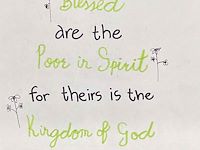 Blessed
are the
Poor in Spirit
for theirs is the
Kingdom of God